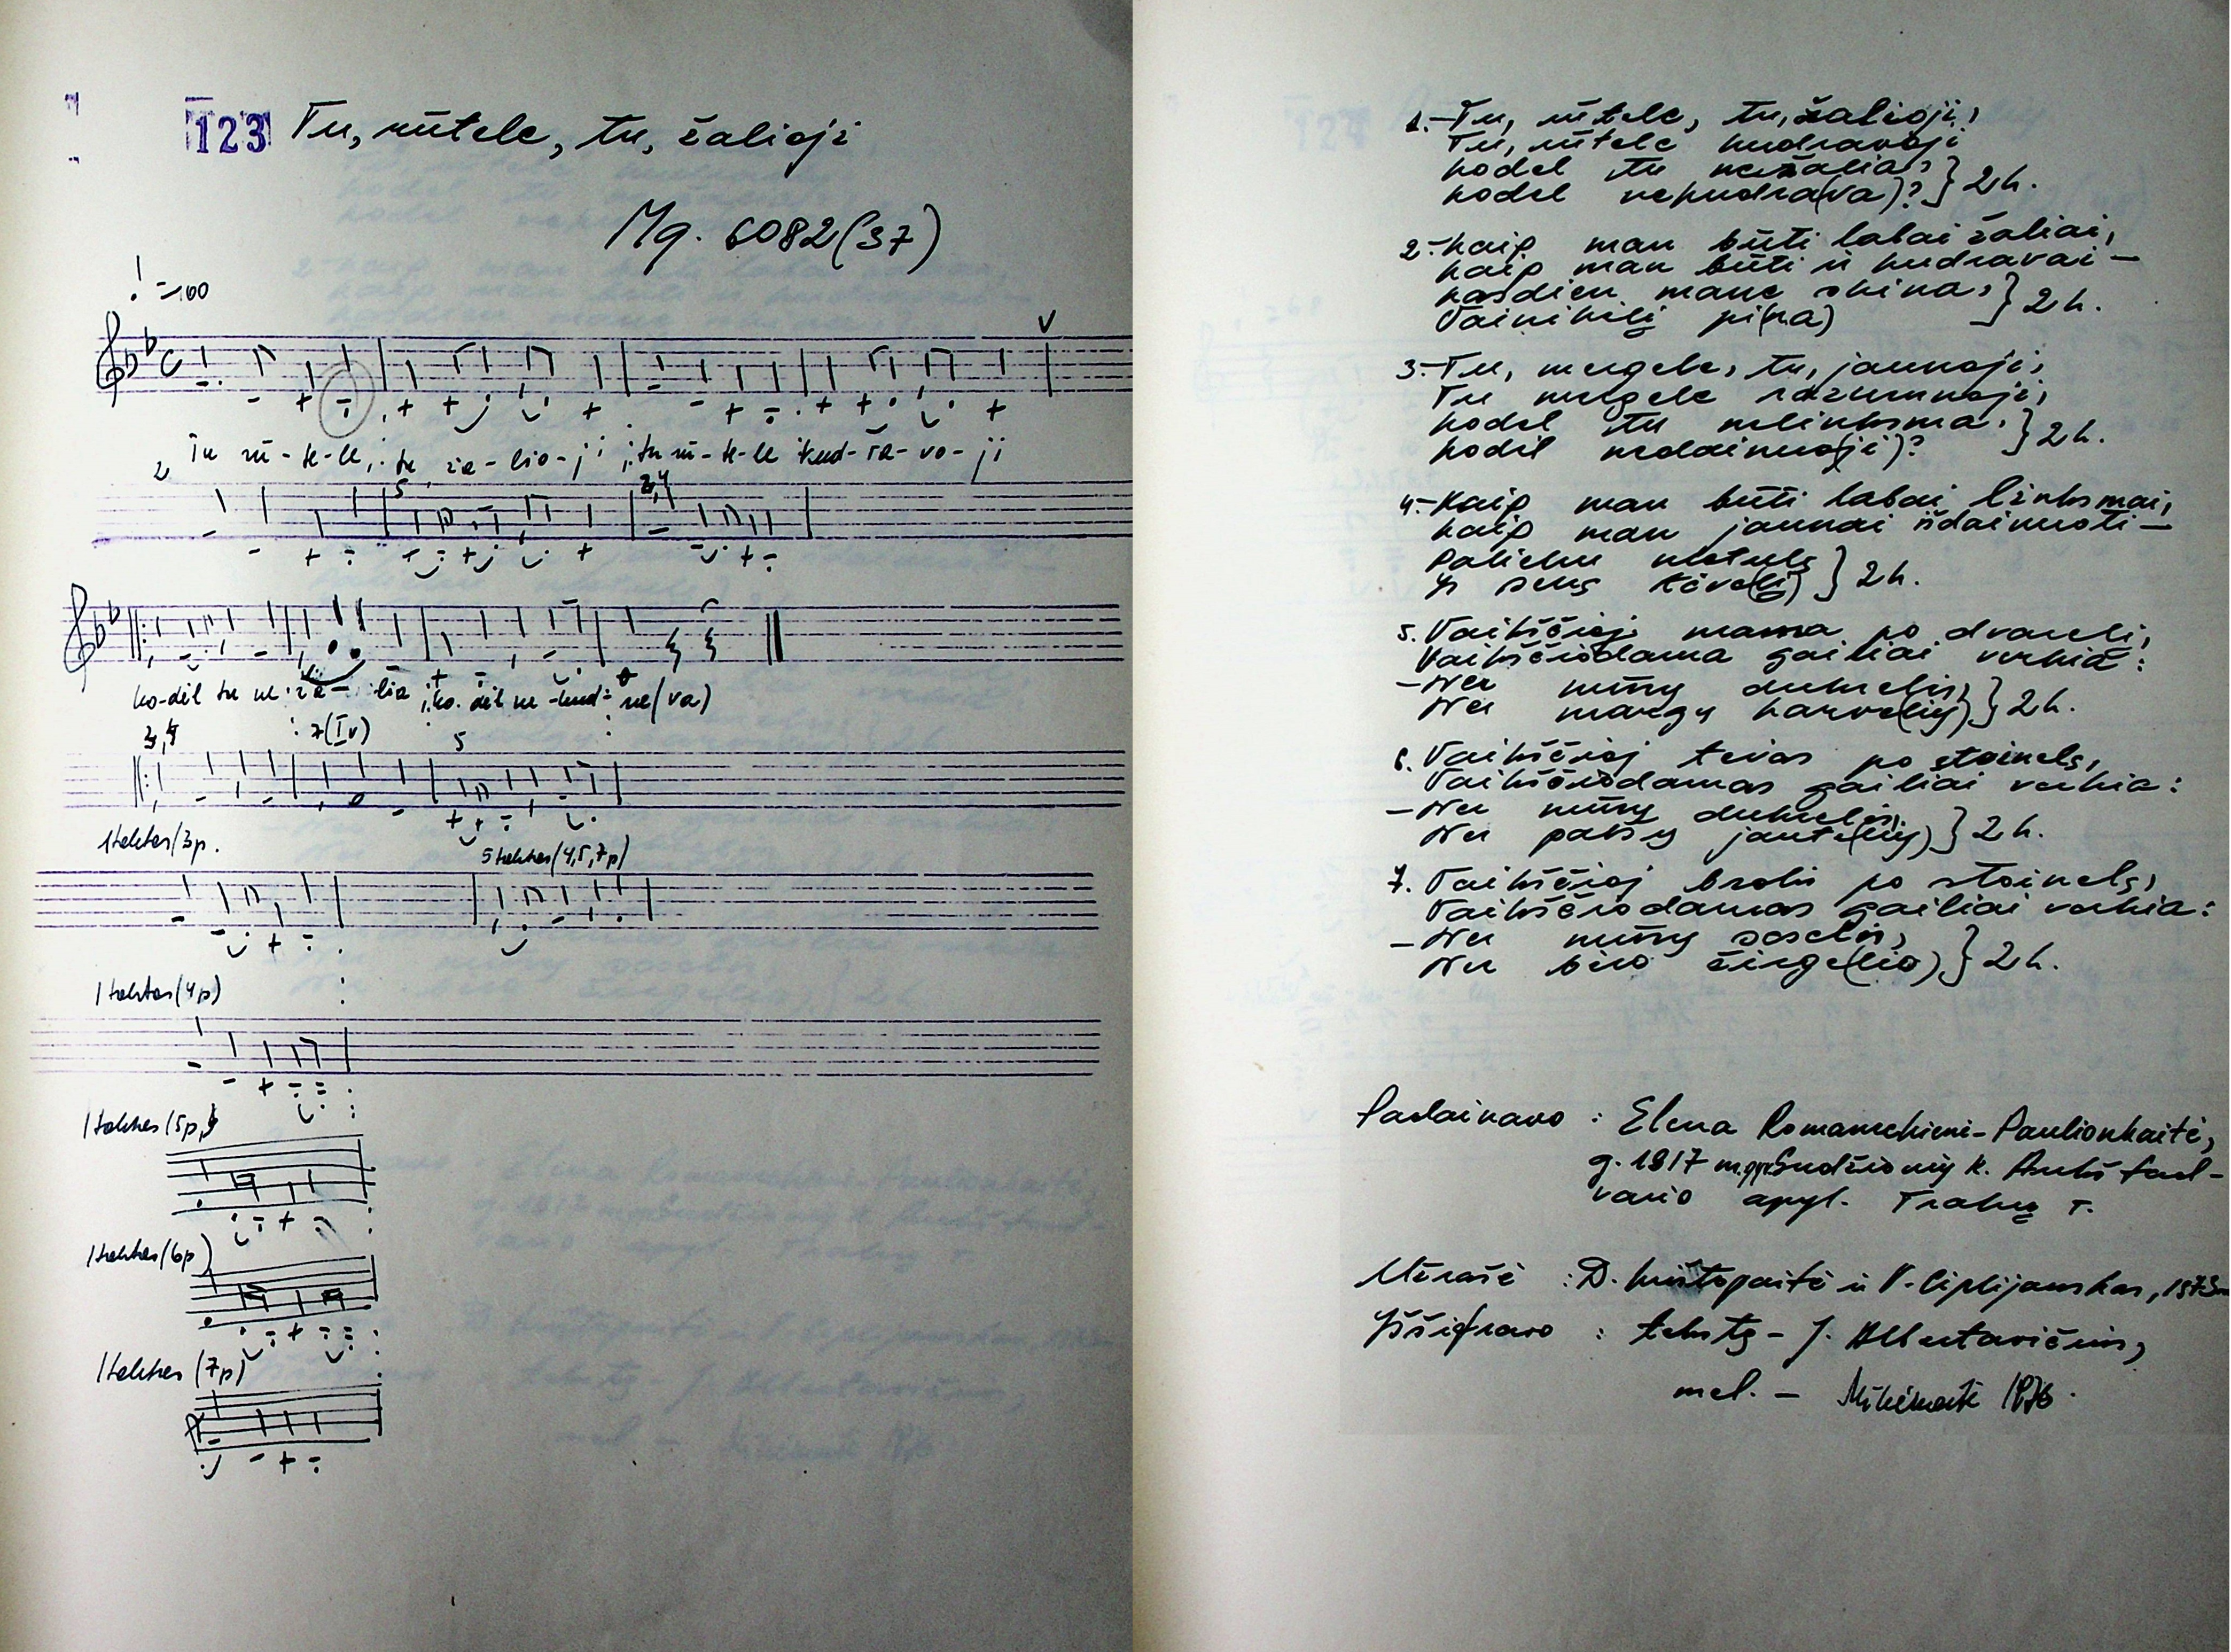 123 Tu, rūtele, tu, žalioji
Mg. 6082(37)
=100
Tu rū-te-le, tu ža-lio-ji, tu rū-te-le kud-ra-vo-ji
2
5
3,4
ko-dėl tu ne-ža-lia, ko-dėl ne-kud-ra(va)
3,4
7(Iv)
5
1 taktas (3p.
5 taktas (4,5,7p)
1 taktas (4p)
1 taktas (5p,
1 taktas (6p)
1 taktas (7p)
1.-Tu, rūtele, tu, žalioji,
Tu, rūtele kudravoji
kodėl tu nežalia,
kodėl nekudra(va)? } 2 k.
2.-Kaip man būti labai žaliai,
kaip man būti ir kudravai –
kasdien mane skina,
Vainikėlį pi(na) } 2 k.
3.-Tu, mergele, tu, jaunoji,
Tu mergele razumnoji,
kodėl tu nelinksma,
kodėl nedainuo(ji)? } 2 k.
4.-Kaip man būti labai linksmai,
kaip man jaunai išdainuoti –
Palieku
Ir seną tėve(lį) } 2 k.
5. Vaikščioj mama po dvarelį,
Vaikščiodama gailiai verkia:
-Nėr mūsų dukrelės,
Nėr margų karve(lių) } 2 k.
6. Vaikščioj tėvas po stainelę,
Vaikščiodamas gailiai verkia:
-Nėr mūsų dukrelės,
Nėr palšų jaute(lių) } 2 k.
7. Vaikščioj brolis po stainelę,
Vaikščiodamas gailiai verkia:
-Nėr mūsų seselės,
Nėr bėro žirge(lio) } 2 k.
Padainavo : Elena Romanuckienė-Paulionkaitė,
g. 1917 m. k. Aukštad-
vario apyl. Trakų r.
Užrašė : D. Krištopaitė ir V. Ciplijauskas, 1973
Iššifravo : tekstą – J. Albertavičius,
mel. – 1976.